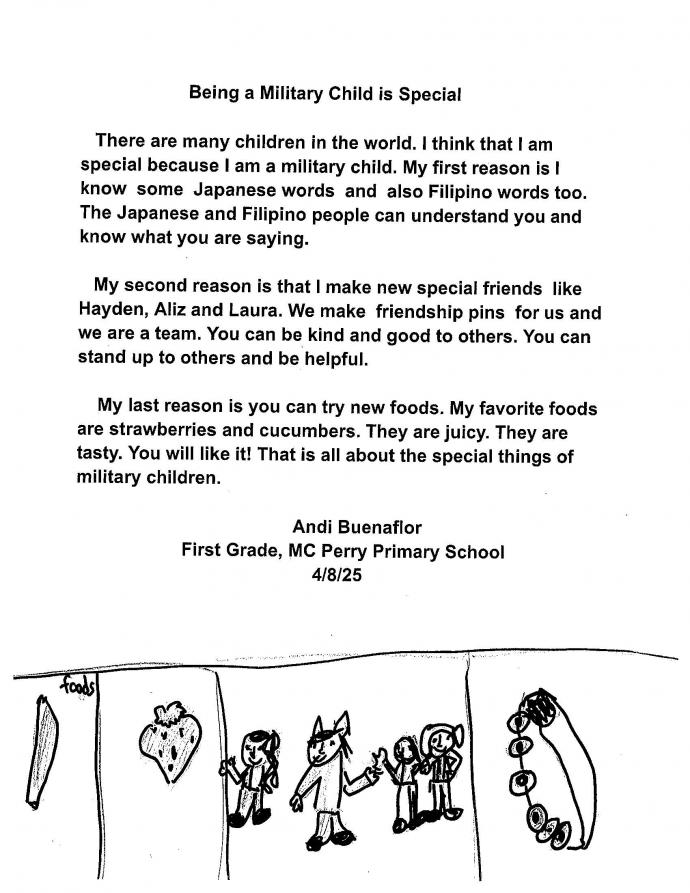 Being a Military Child is Special
There are many children in the world. I think that I am
special because I am a military child. My first reason is I
know some Japanese words and also Filipino words too.
The Japanese and Filipino people can understand you and
know what you are saying.
My second reason is that I make new special friends like
Hayden, Aliz and Laura. We make friendship pins for us and
we are a team. You can be kind and good to others. You can
stand up to others and be helpful.
My last reason is you can try new foods. My favorite foods
are strawberries and cucumbers. They are juicy. They are
tasty. You will like it! That is all about the special things of
military children.
Andi Buenaflor
First Grade, MC Perry Primary School
4/8/25
foods